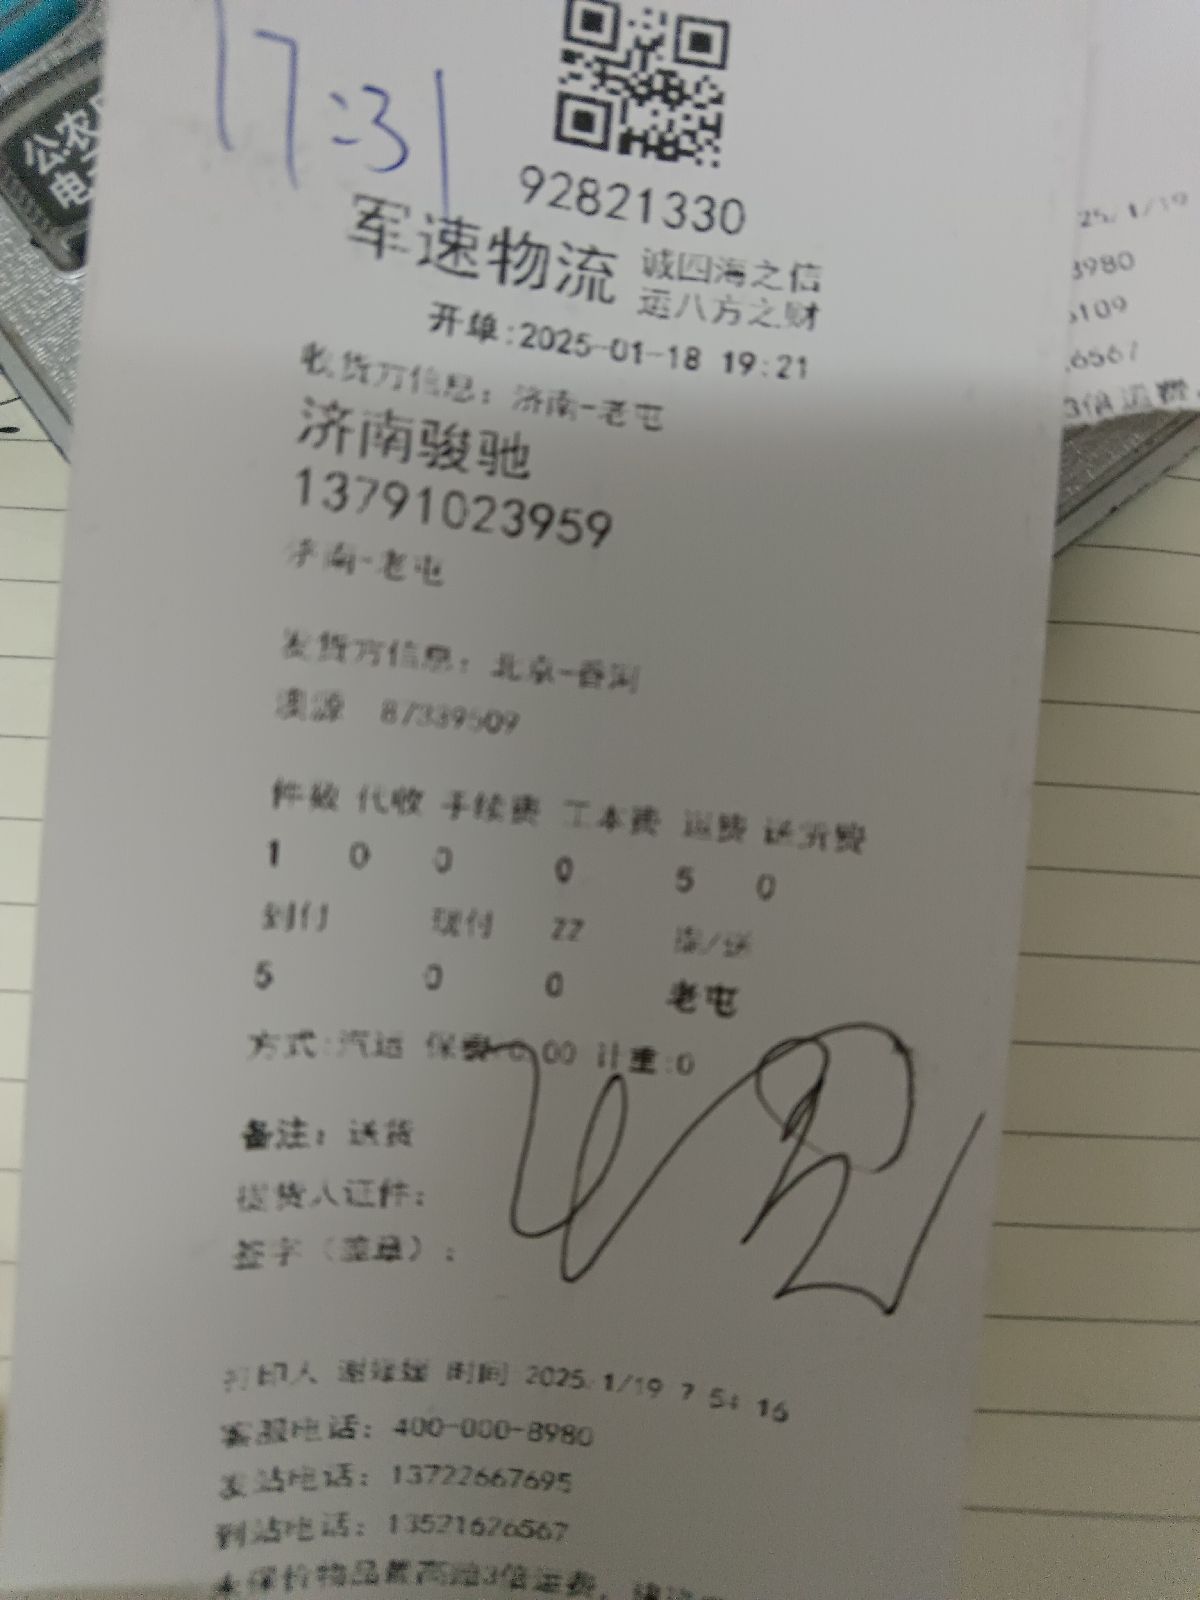 17:31
92821330
军速物流 诚四海之信
运八方之财
开单:2025-01-18 19:21
收货方信息：济南-老屯
济南骏驰
13791023959
济南-老屯
发货方信息：北京-香河
澳源 87339509
件数 代收 手续费 工本费 运费 送货费
1 0 0 0 5 0
到付 现付 ZZ 库/送
5 0 0 老屯
方式:汽运 保费 0.00 计重:0
备注：送货
提货人证件：
签字（盖章）：
打印人 时间 2025/1/19 7 54 16
客服电话：400-000-8980
发站电话：13722667695
到站电话：13521626567
未保价物品最高赔3倍运费，
公农
电
25/1/19
8980
6567
3倍运费